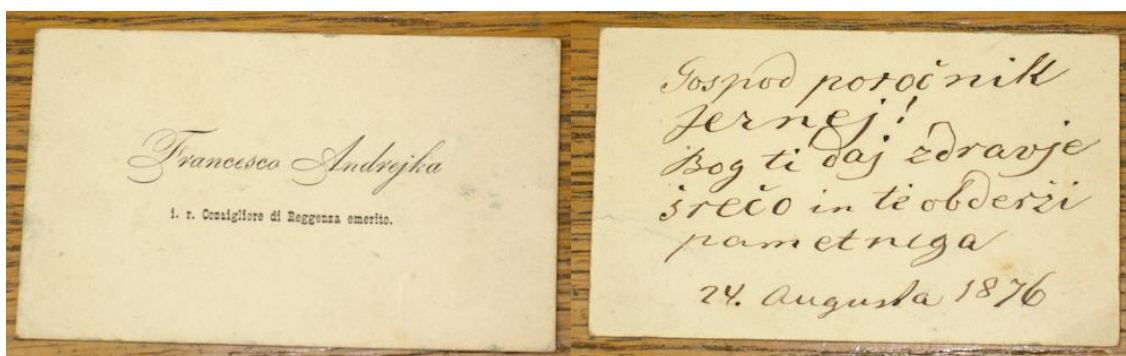 Francesco Andrejka
i. r. Consigliere di Reggenza emerito.
Gospod poročnik
Jernej!
Bog ti daj zdravje
srečo in te obderži
pametniga
24. Augusta 1876